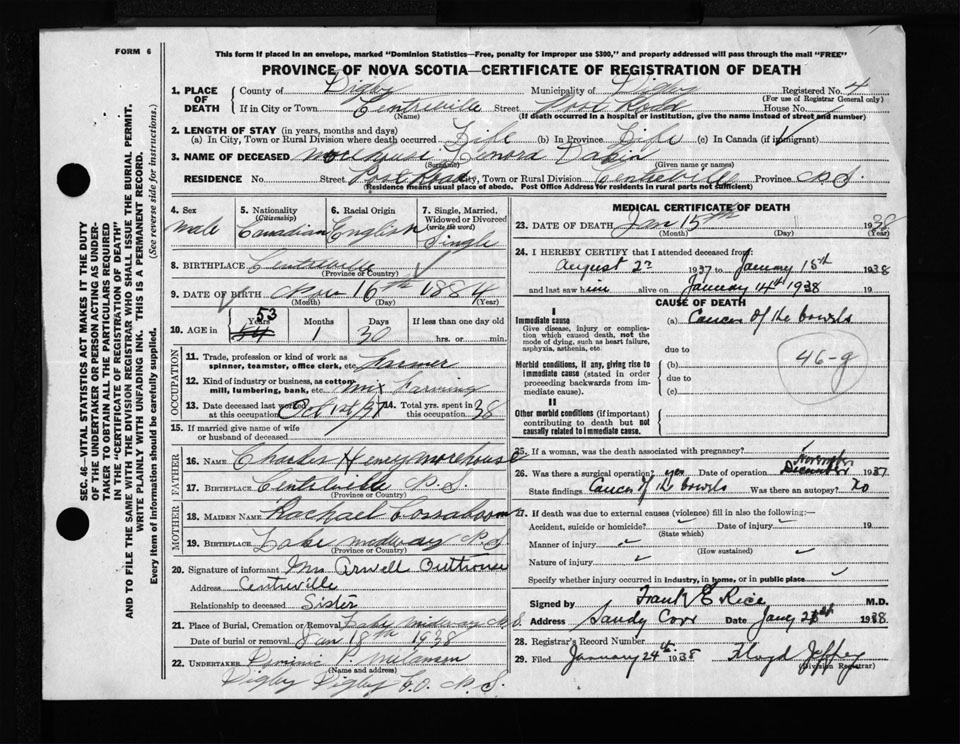 FORM 6
This form if placed in an envelope, marked "Dominion Statistics—Free, penalty for improper use $300," and properly addressed will pass through the mail "FREE"
PROVINCE OF NOVA SCOTIA—CERTIFICATE OF REGISTRATION OF DEATH
1. PLACE OF DEATH County of Digby Municipality of Digby Registered No. 4
(For use of Registrar General only)
If in City or Town Centreville Street Post Road House No.
(Name) (If death occurred in a hospital or institution, give the name instead of street and number)
2. LENGTH OF STAY (in years, months and days)
(a) In City, Town or Rural Division where death occurred Life (b) In Province Life (c) In Canada (if immigrant)
3. NAME OF DECEASED Morehouse Lenord Dakin
(Surname) (Given name or names)
RESIDENCE No. Street Post Road City, Town or Rural Division Centreville Province N.S.
(Residence means usual place of abode. Post Office Address for residents in rural parts not sufficient)
SEC. 46—VITAL STATISTICS ACT MAKES IT THE DUTY
OF THE UNDERTAKER OR PERSON ACTING AS UNDER-
TAKER TO OBTAIN ALL THE PARTICULARS REQUIRED
IN THE "CERTIFICATE OF REGISTRATION OF DEATH"
AND TO FILE THE SAME WITH THE DIVISION REGISTRAR WHO SHALL ISSUE THE BURIAL PERMIT.
WRITE PLAINLY WITH UNFADING INK. THIS IS A PERMANENT RECORD.
Every item of information should be carefully supplied. (See reverse side for instructions.)
4. Sex Male
5. Nationality (Citizenship) Canadian
6. Racial Origin English
7. Single, Married, Widowed or Divorced (write the word) Single
8. BIRTHPLACE Centreville
(Province or Country)
9. DATE OF BIRTH Nov 16th 1884
(Month) (Day) (Year)
10. AGE in Years 53 Months 1 Days 30 If less than one day old hrs. or min.
OCCUPATION
11. Trade, profession or kind of work as spinner, teamster, office clerk, etc. Farmer
12. Kind of industry or business, as cotton mill, lumbering, bank, etc. Mix Farming
13. Date deceased last worked at this occupation Oct 1st/37 14. Total yrs. spent in this occupation 38
15. If married give name of wife or husband of deceased
FATHER
16. Name Charles Henry Morehouse
17. Birthplace Centreville N.S.
(Province or Country)
MOTHER
18. Maiden Name Rachael Cossaboom
19. Birthplace Lake Midway N.S.
(Province or Country)
20. Signature of informant Mrs Arwell Outhouse
Address Centreville
Relationship to deceased Sister
21. Place of Burial, Cremation or Removal Lake Midway N.S.
Date of burial or removal Jan 18th 1938
22. UNDERTAKER
(Name and address)
Digby Digby Co. N.S.
MEDICAL CERTIFICATE OF DEATH
23. DATE OF DEATH Jan 15th 1938
(Month) (Day) (Year)
24. I HEREBY CERTIFY that I attended deceased from:
August 2nd 1937 to January 15th 1938
and last saw him alive on January 14th 1938 19
CAUSE OF DEATH
I
Immediate cause (a) Cancer of the bowels
Give disease, injury or complication which caused death, not the mode of dying, such as heart failure, asphyxia, asthenia, etc.
due to
Morbid conditions, if any, giving rise to immediate cause (stated in order proceeding backwards from immediate cause). (b)
due to
(c)
46-g
II
Other morbid conditions (if important) contributing to death but not causally related to immediate cause.
25. If a woman, was the death associated with pregnancy?
26. Was there a surgical operation? yes Date of operation November 1937
State findings Cancer of the bowels Was there an autopsy? no
27. If death was due to external causes (violence) fill in also the following:—
Accident, suicide or homicide? Date of injury 19
(State which)
Manner of injury
(How sustained)
Nature of injury
Specify whether injury occurred in industry, in home, or in public place
Signed by Frank E Rice M.D.
Address Sandy Cove Date Jany 1938
28. Registrar's Record Number
29. Filed January 24th 1938 Floyd Jeffrey
(Division Registrar)